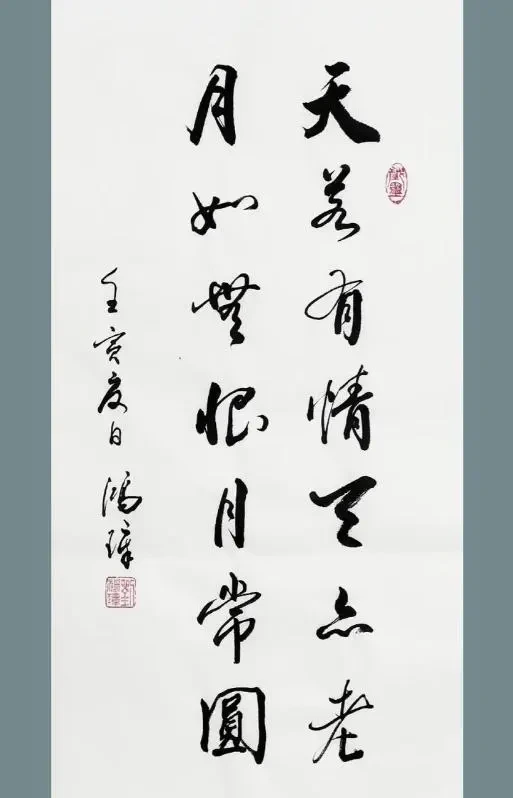 天若有情天亦老
月如無恨月常圓
壬寅夏日 鴻璋